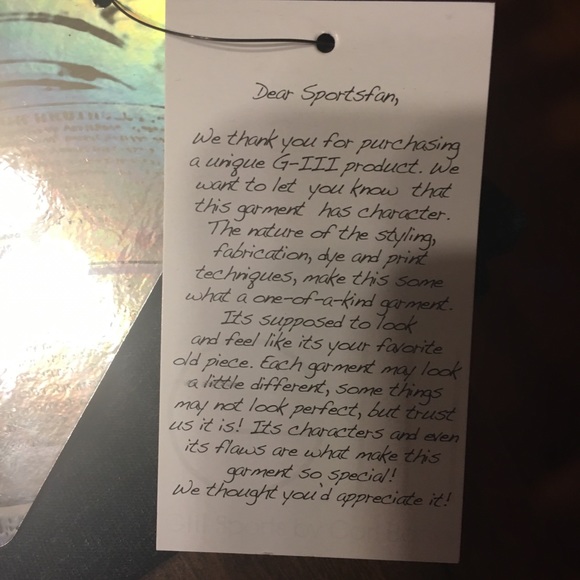 Dear Sportsfan,
We thank you for purchasing
a unique G-III product. We
want to let you know that
this garment has character.
The nature of the styling,
fabrication, dye and print
techniques, make this some
what a one-of-a-kind garment.
Its supposed to look
and feel like its your favorite
old piece. Each garment may look
a little different, some things
may not look perfect, but trust
us it is! Its characters and even
its flaws are what make this
garment so special!
We thought you'd appreciate it!